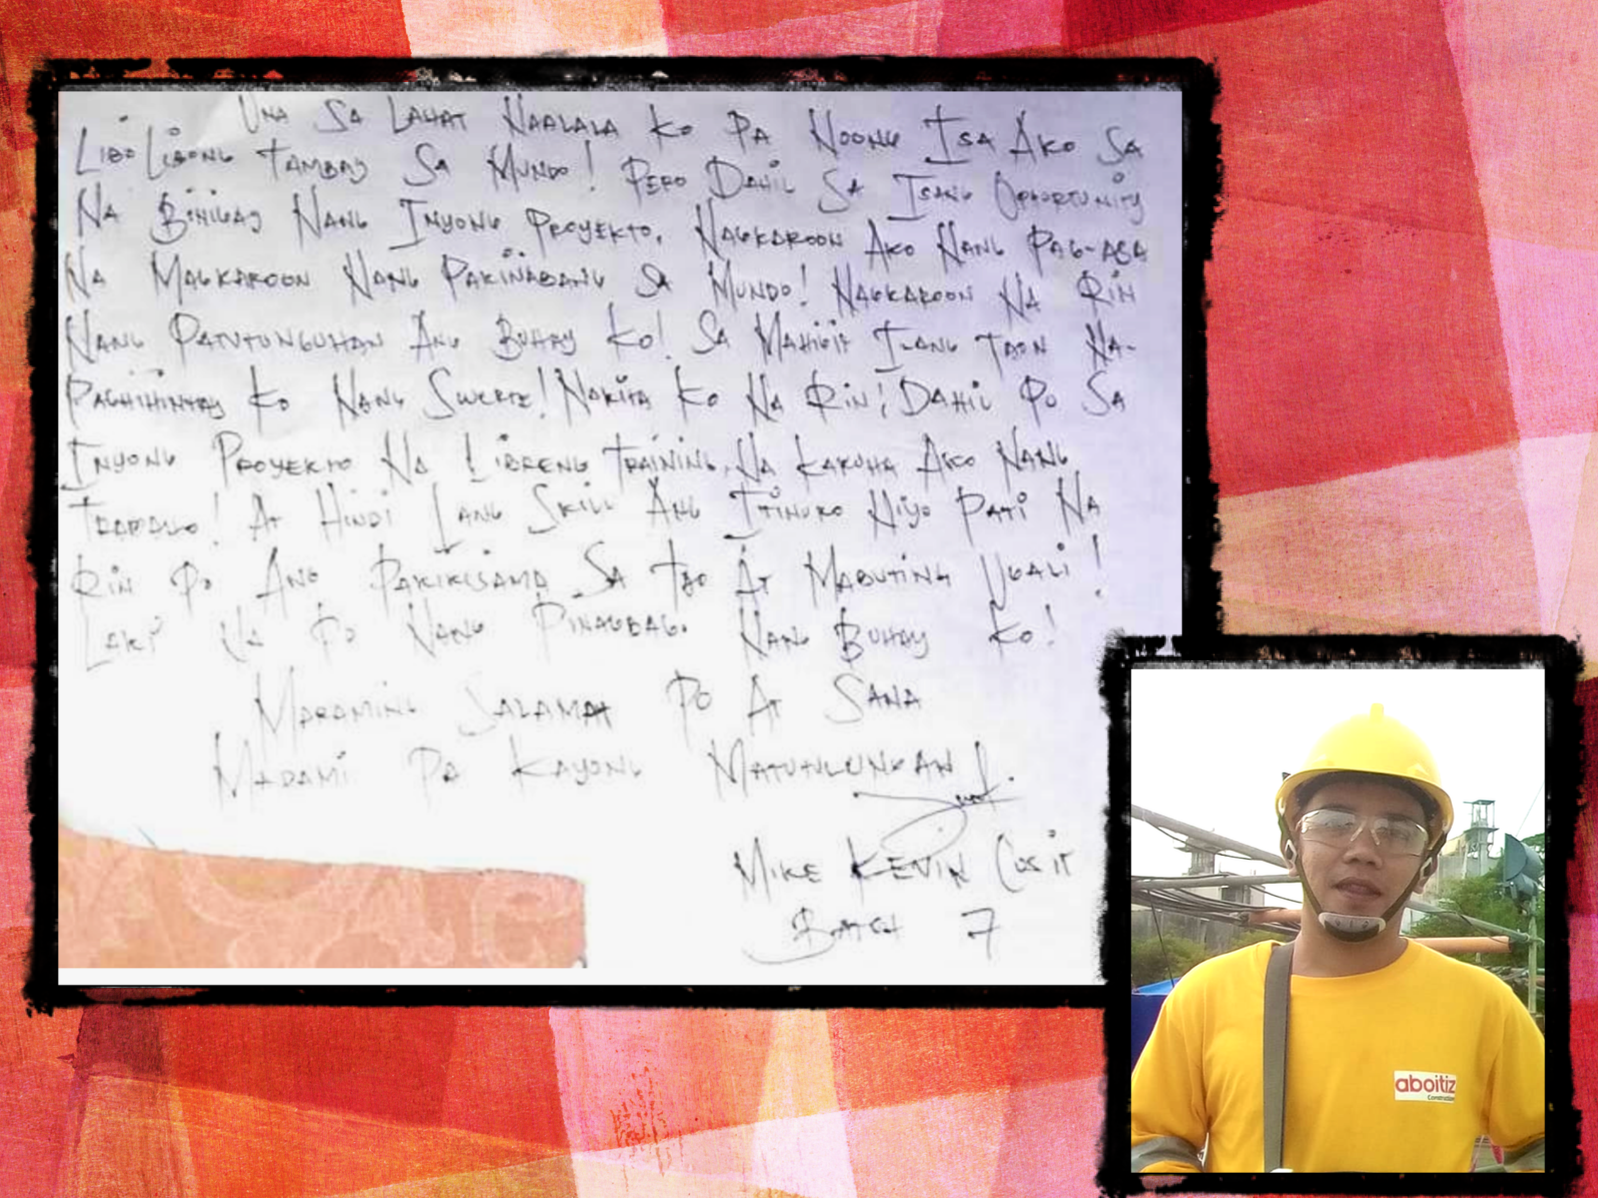 Una Sa Lahat Naalala Ko Pa Noong Isa Ako Sa
Libo Libong Tambay Sa Mundo! Pero Dahil Sa Isang Opportunity
Na Binigay Nang Inyong Proyekto, Nagkaroon Ako Nang Pag-asa
Na Magkaroon Nang Pakinabang Sa Mundo! Nagkaroon Na Rin
Nang Patutunguhan Ang Buhay Ko! Sa Mahigit Ilang Taon Na-
Paghihintay Ko Nang Swerte! Nakita Ko Na Rin! Dahil Po Sa
Inyong Proyekto Na Libreng Training, Na Kakuha Ako Nang
Trabaho! At Hindi Lang Skill Ang Itinuro Niyo Pati Na
Rin Po Ang Pakikisama Sa Tao At Mabuting Ugali!
Laki Na Po Nang Pinagbag. Nang Buhay Ko!
Maraming Salamat Po At Sana
Madami Pa Kayong Matutulungan
Mike Kevin Cusit
Batch 7
aboitiz
Construction